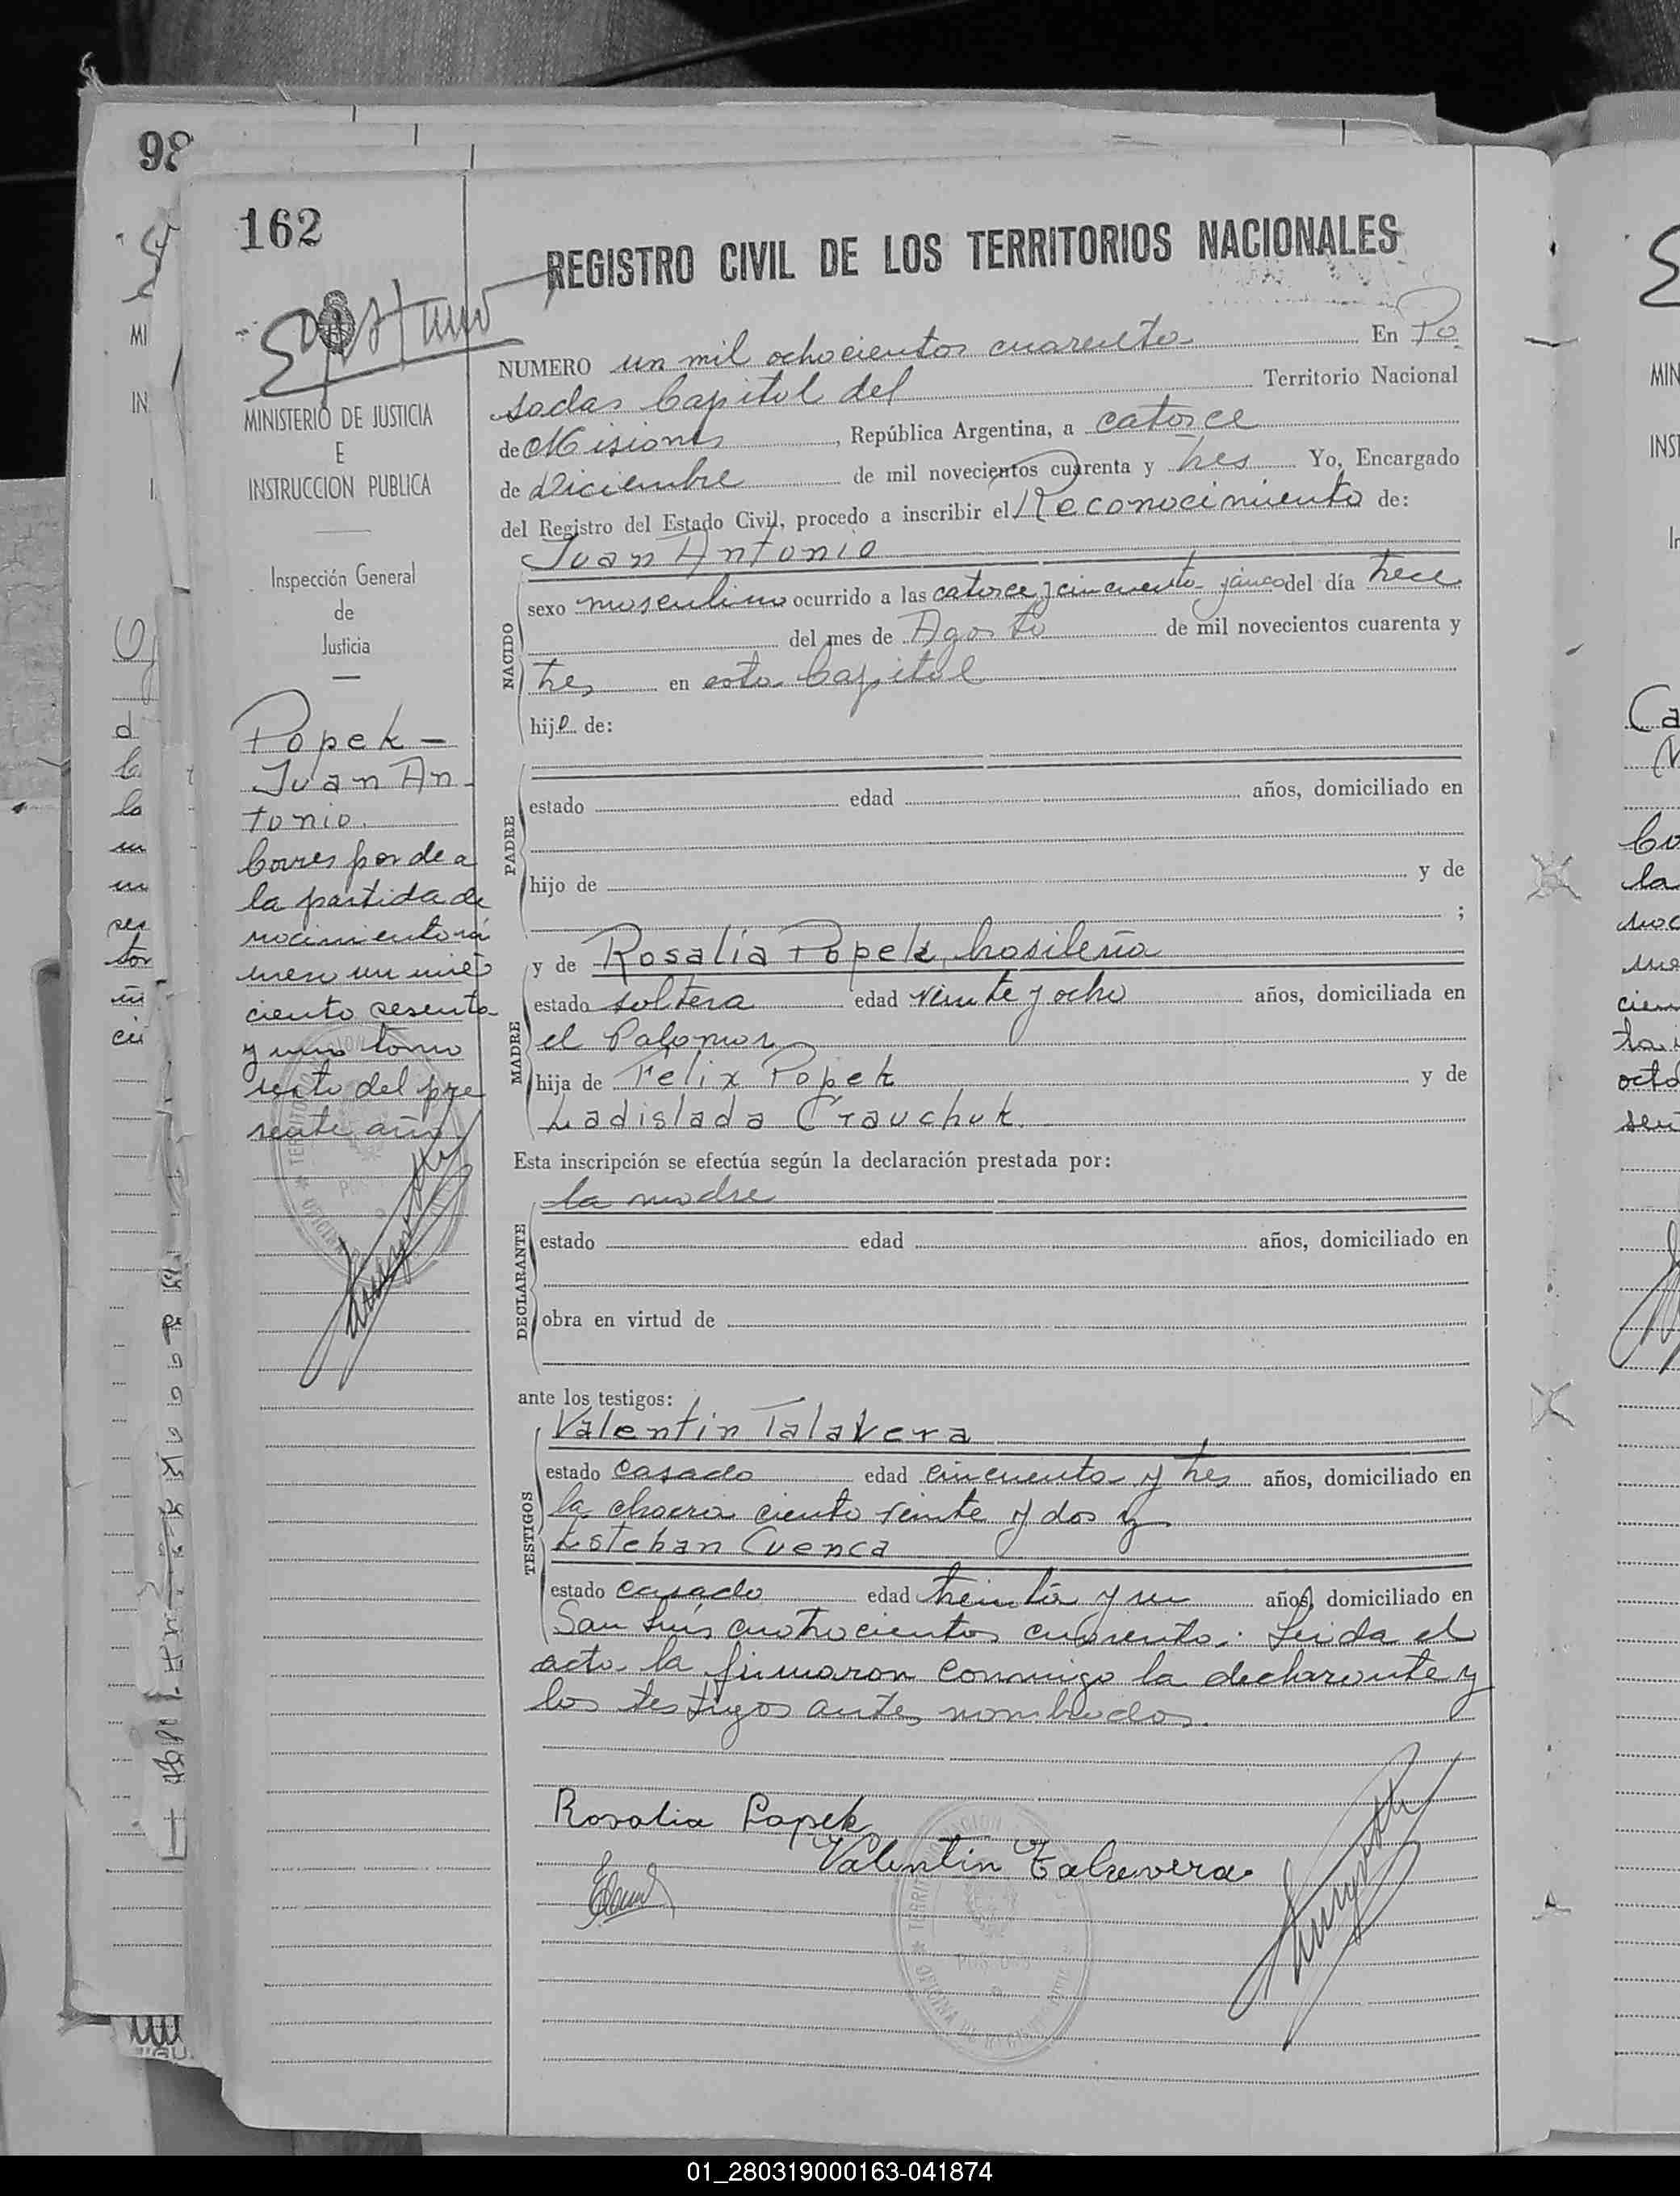 98
162
REGISTRO CIVIL DE LOS TERRITORIOS NACIONALES
MINISTERIO DE JUSTICIA
E
INSTRUCCION PUBLICA
Inspección General
de
Justicia
Popek -
Juan An-
tonio.
Corresponde a
la partida de
nacimiento nú
mero un mil
ciento sesenta
y uno tomo
sexto del pre
sente año.
NUMERO un mil ochocientos cuarenta En Po
sadas Capital del Territorio Nacional
de Misiones, República Argentina, a catorce
de Diciembre de mil novecientos cuarenta y tres Yo, Encargado
del Registro del Estado Civil, procedo a inscribir el Reconocimiento de:
Juan Antonio
NACIDO
sexo masculino ocurrido a las catorce y cincuenta y cinco del día trece
del mes de Agosto de mil novecientos cuarenta y
tres en esta Capital
hijo de:
PADRE
estado edad años, domiciliado en
hijo de y de
;
y de Rosalia Popek, brasileña
MADRE
estado soltera edad veinte y ocho años, domiciliada en
el Palomar
hija de Felix Popek y de
Ladislada Crauchuk.
Esta inscripción se efectúa según la declaración prestada por:
la madre
DECLARANTE
estado edad años, domiciliado en
obra en virtud de
ante los testigos:
Valentin Talavera
TESTIGOS
estado casado edad cincuenta y tres años, domiciliado en
la chacra ciento veinte y dos y
Esteban Cuenca
estado casado edad treinta y un años, domiciliado en
San Luis cuatrocientos cuarenta. Leida el
acta la firmaron conmigo la declarante y
los testigos antes nombrados.
Rosalia Popek
Valentin Talavera
01_280319000163-041874